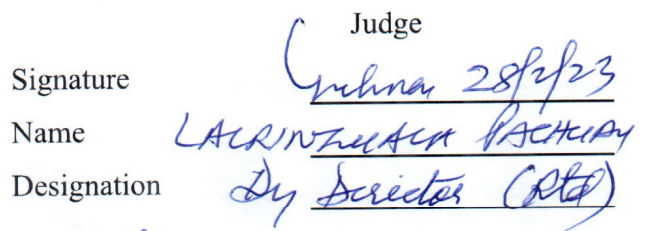 Judge
Signature 28/2/23
Name LALRINZUALA PACHUAU
Designation Dy Director (Rtd)